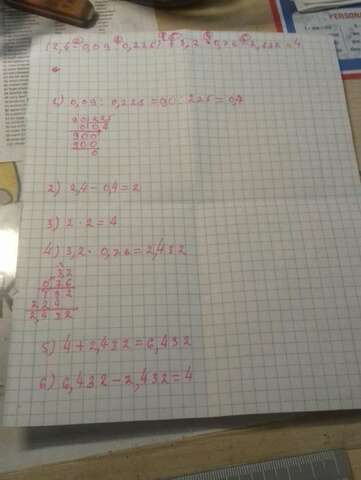 1) 0,09 : 0,225 = 90 : 225 = 0,4
900
900
0
2) 2,4 - 0,4 = 2
3) 2 · 2 = 4
4) 3,2 · 0,76 = 2,432
3,2
0,76
192
224
2,432
5) 4 + 2,432 = 6,432
6) 6,432 - 2,432 = 4
PERSONA